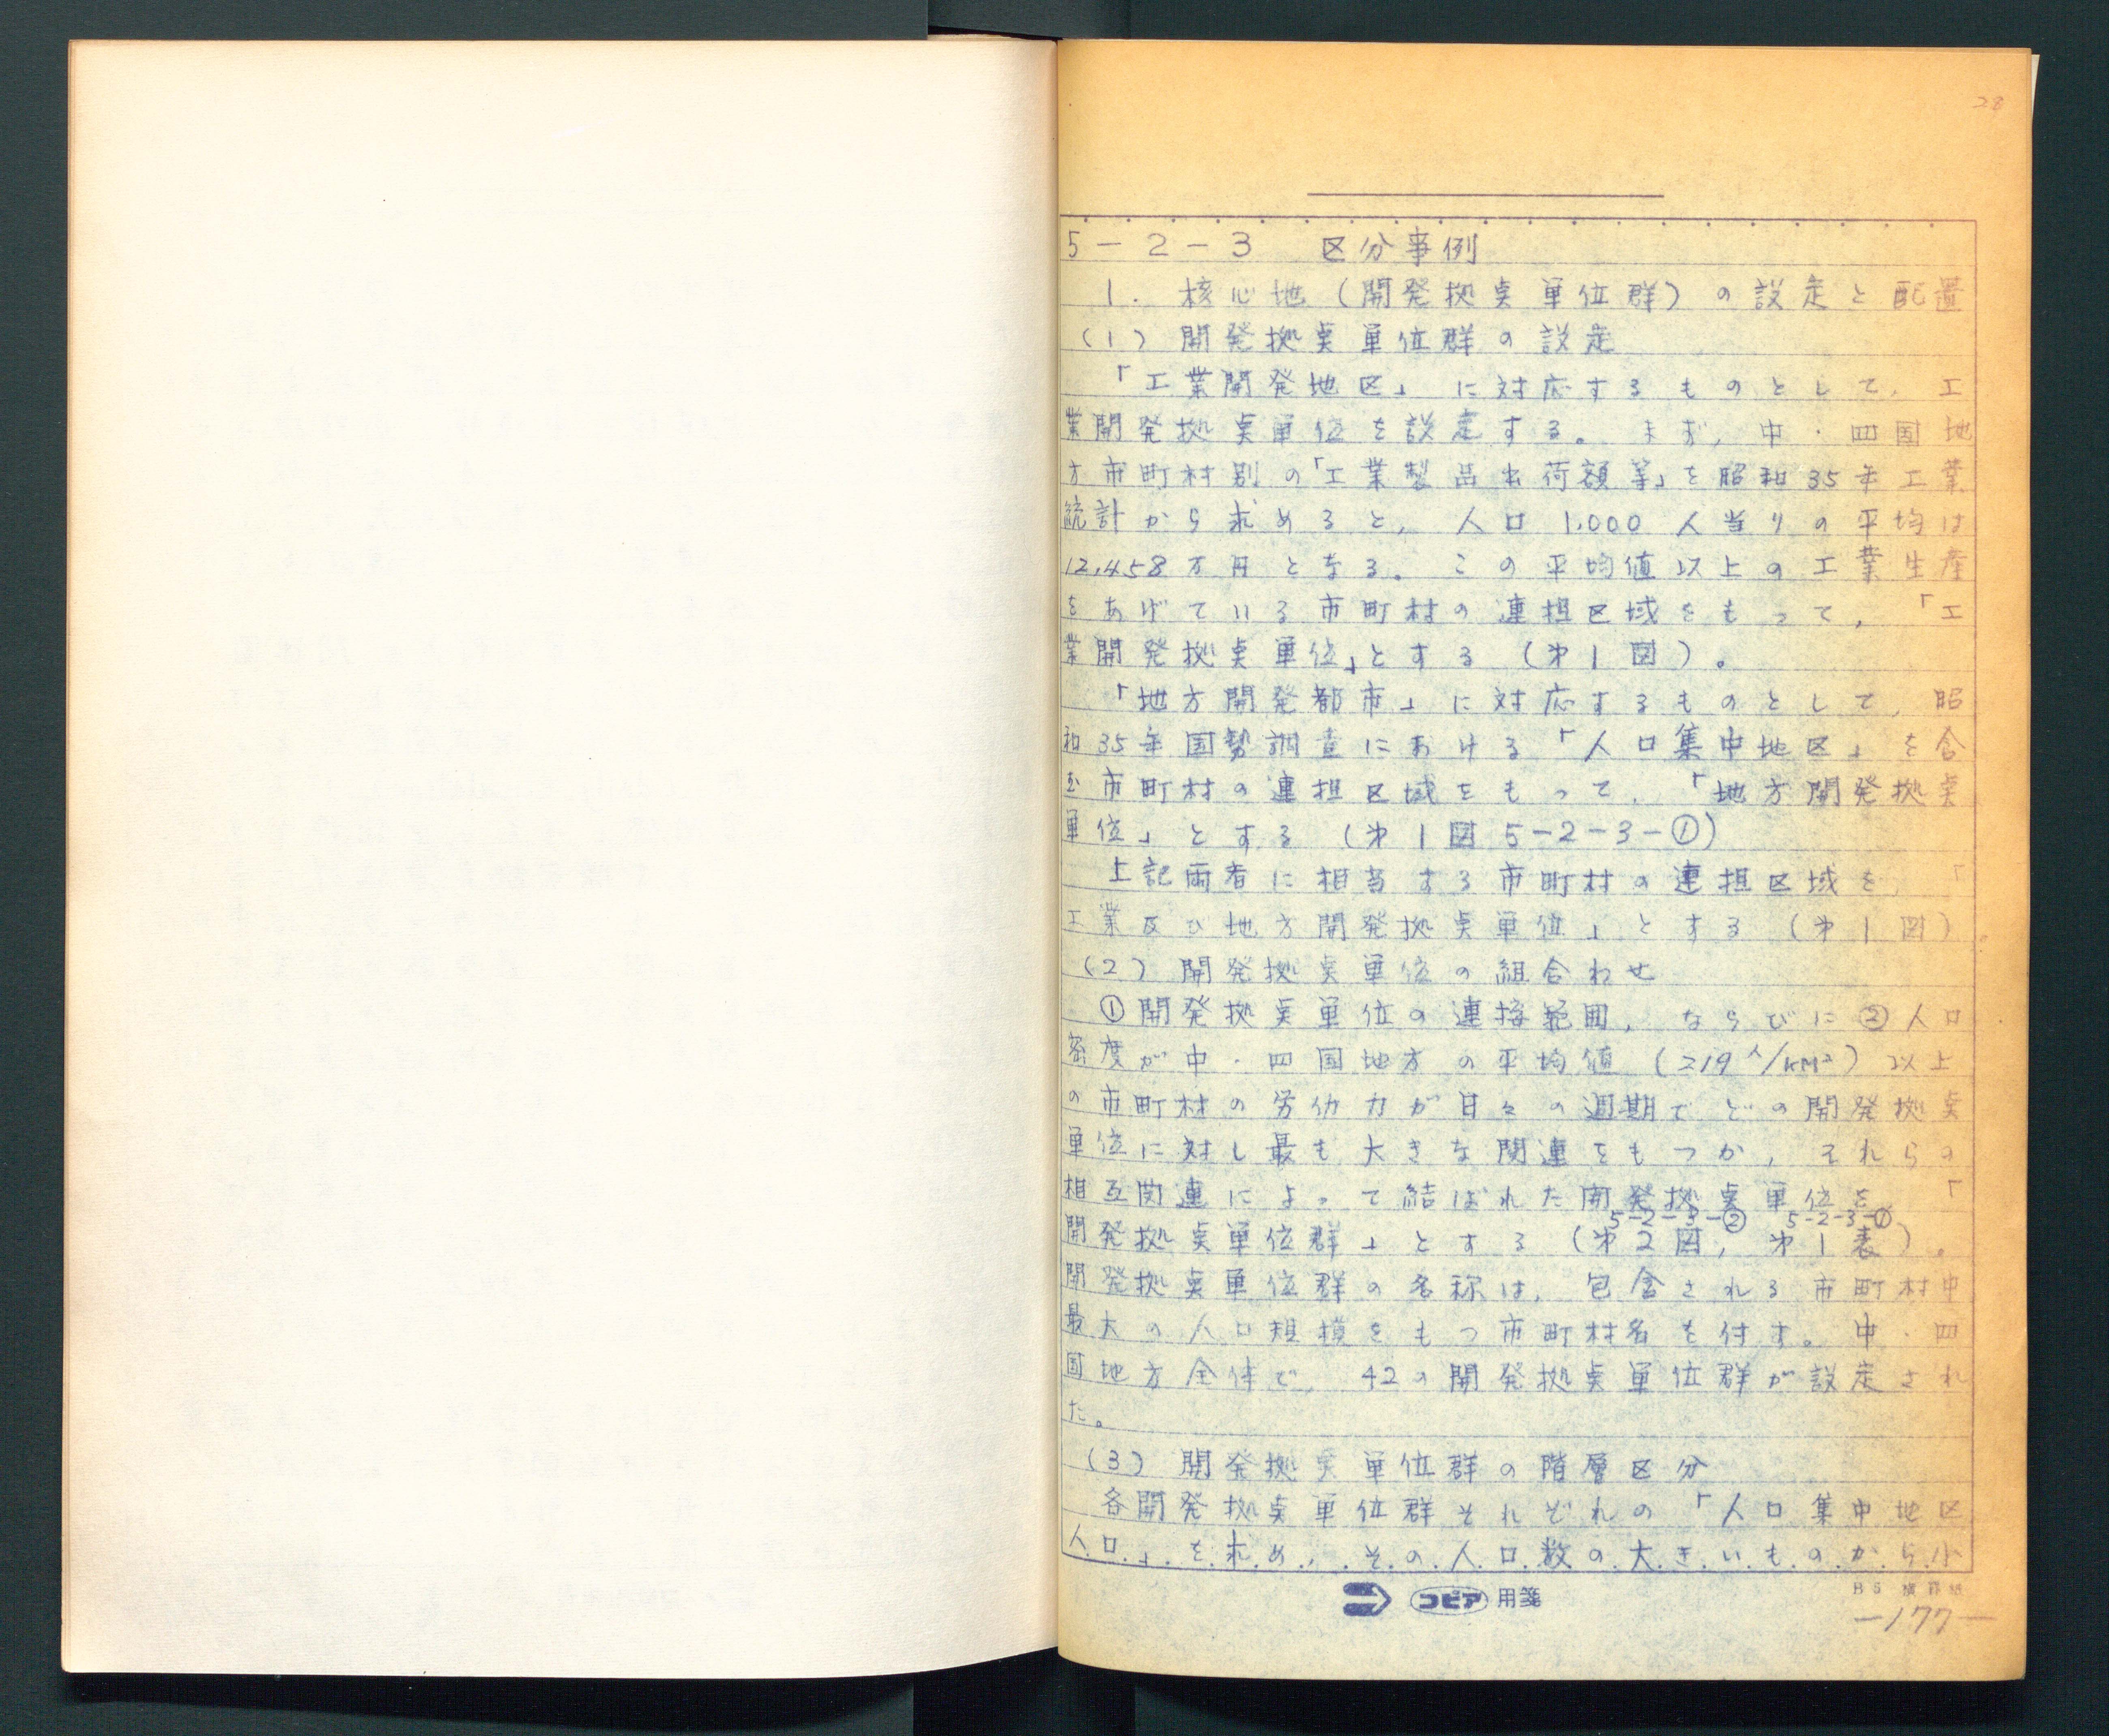 28
5-2-3 区分事例
1. 核心地(開発拠点単位群)の設定と配置
(1) 開発拠点単位群の設定
「工業開発地区」に対応するものとして,工
業開発拠点単位を設定する。まず,中・四国地
方市町村別の「工業製品出荷額等」を昭和35年工業
統計から求めると,人口1,000人当りの平均は
12,458万円となる。この平均値以上の工業生産
をあげている市町村の連担区域をもって,「工
業開発拠点単位」とする(才1図)。
「地方開発都市」に対応するものとして,昭
和35年国勢調査における「人口集中地区」を含
む市町村の連担区域をもって,「地方開発拠点
単位」とする(才1図5-2-3-①)
上記両者に相当する市町村の連担区域を,「
工業及び地方開発拠点単位」とする(才1図)。
(2) 開発拠点単位の組合わせ
①開発拠点単位の連接範囲,ならびに②人口
密度が中・四国地方の平均値(219人/KM²)以上
の市町村の労仂力が日々の週期でどの開発拠点
単位に対し最も大きな関連をもつか,それらの
相互関連によって結ばれた開発拠点単位を「
5-2-3-② 5-2-3-①
開発拠点単位群」とする(才2図,才1表)。
開発拠点単位群の名称は,包含される市町村中
最大の人口規模をもつ市町村名を付す。中・四
国地方全体で,42の開発拠点単位群が設定され
た。
(3) 開発拠点単位群の階層区分
各開発拠点単位群それぞれの「人口集中地区
人口」を求め,その人口数の大きいものから小
コピア用箋
B5 横罫紙
-177-